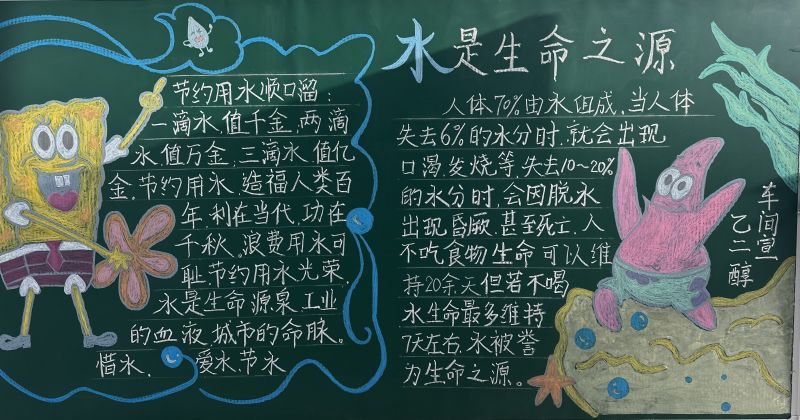 节约用水顺口溜:
一滴水,值千金,两滴
水,值万金,三滴水,值亿
金,节约用水,造福人类百
年,利在当代,功在
千秋。浪费用水可
耻,节约用水光荣,
水是生命源泉,工业
的血液,城市的命脉。
惜水, 爱水,节水
水是生命之源
人体70%由水组成,当人体
失去6%的水分时,就会出现
口渴,发烧等,失去10~20%
的水分时,会因脱水
出现昏厥,甚至死亡,人
不吃食物生命可以维
持20余天但若不喝
水生命最多维持
7天左右,水被誉
为生命之源。
乙二醇
车间宣